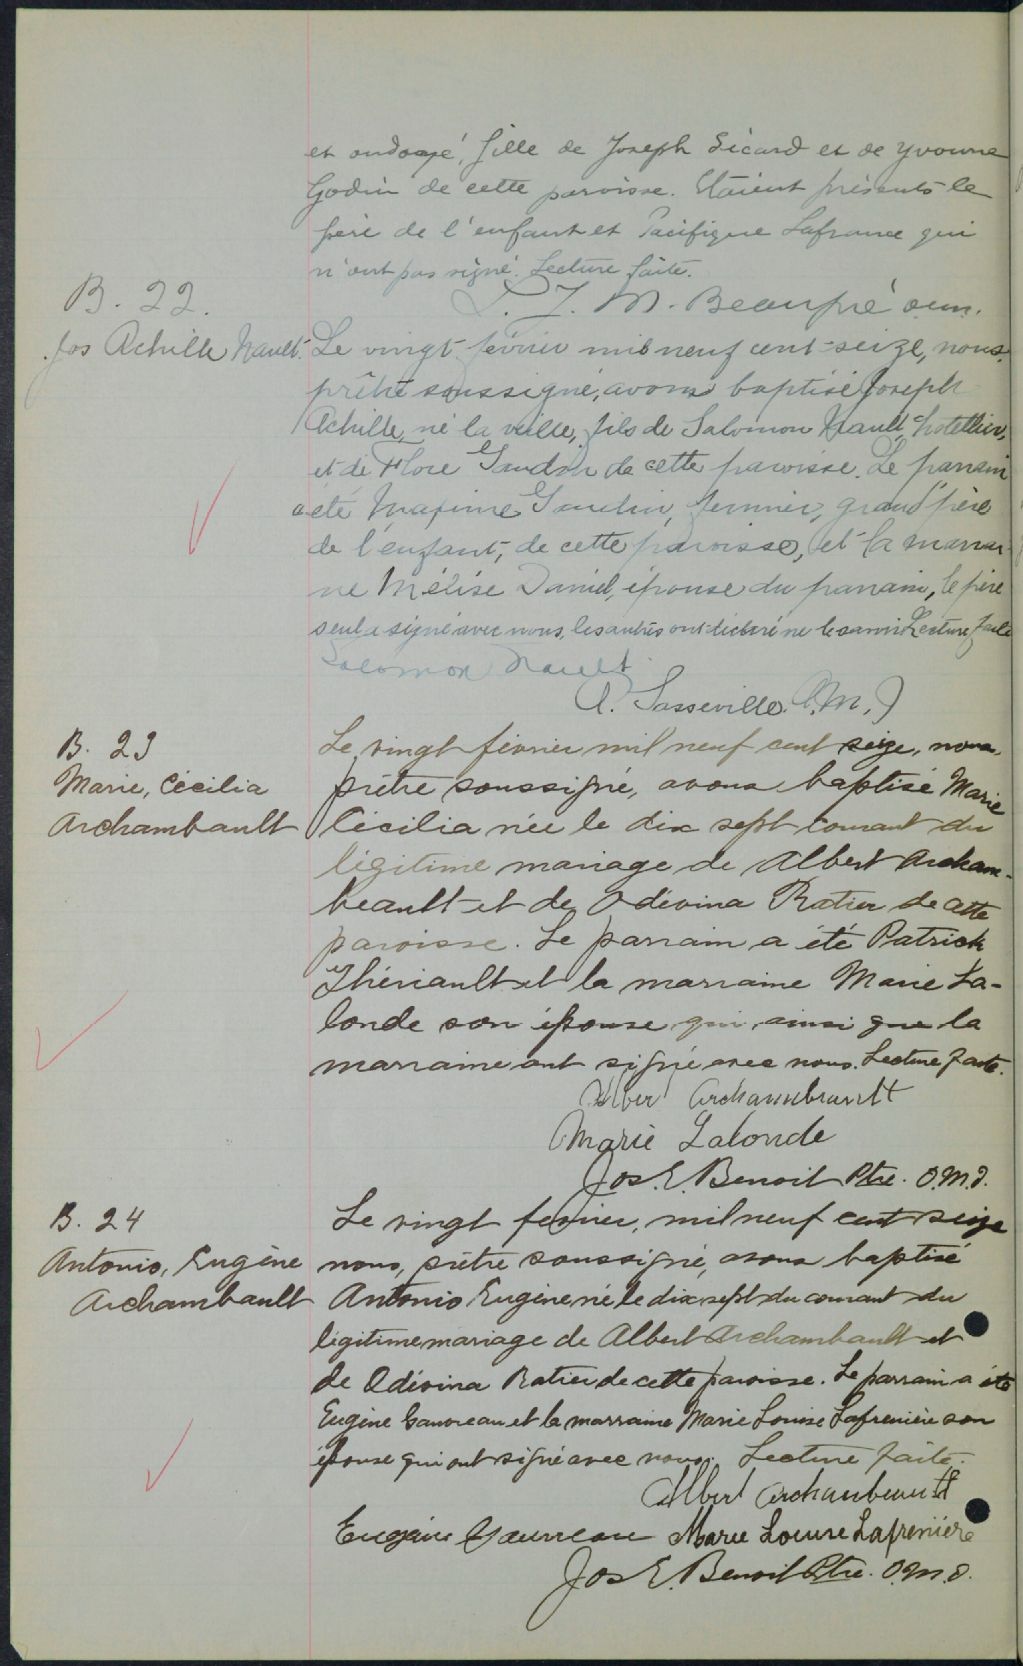 et ondoyé, fille de Joseph Sicard et de Yvonne
Godin de cette paroisse. Etaient présents le
père de l'enfant et Pacifique Lafrance qui
n'ont pas signé. Lecture faite.
B. 22.
J. M. Beaupré o.m.i.
Jos Achille Nault.
Le vingt février mil neuf cent seize, nous,
prêtre soussigné, avons baptisé Joseph
Achille, né la veille, fils de Salomon Nault, hotellier,
et de Flore Gaudin de cette paroisse. Le parrain
a été Maxime Gaudin, fermier, grand'père
de l'enfant, de cette paroisse, et la marrai-
ne Mélise Daniel, épouse du parrain, le père
seul a signé avec nous, les autres ont déclaré ne le savoir. Lecture faite
Salomon Nault
A. Lasseville O.M.I
B. 23
Marie, Cécilia
Archambault
Le vingt février mil neuf cent seize, nous,
prêtre soussigné, avons baptisé Marie
Cécilia née le dix sept courant du
légitime mariage de Albert Archam-
beault et de Odivina Ratier de cette
paroisse. Le parrain a été Patrick
Thériault et la marraine Marie La-
londe son épouse qui ainsi que la
marraine ont signé avec nous. Lecture faite.
Alber Archambeault
Marie Lalonde
Jos. E. Benoit Ptre. O.M.I.
B. 24
Antonio, Eugène
Archambault
Le vingt fevrier, mil neuf cent seize
nous, prêtre soussigné, avons baptisé
Antonio Eugène né le dix sept du courant du
légitime mariage de Albert Archambault et
de Odivina Ratier de cette paroisse. Le parrain a été
Eugène Gauvreau et la marraine Marie Louise Lafrenière son
épouse qui ont signé avec nous. Lecture faite.
Albert Archambeault
Eugène Gauvreau Marie Louise Lafrenière
Jos E. Benoit Ptre. O.M.I.